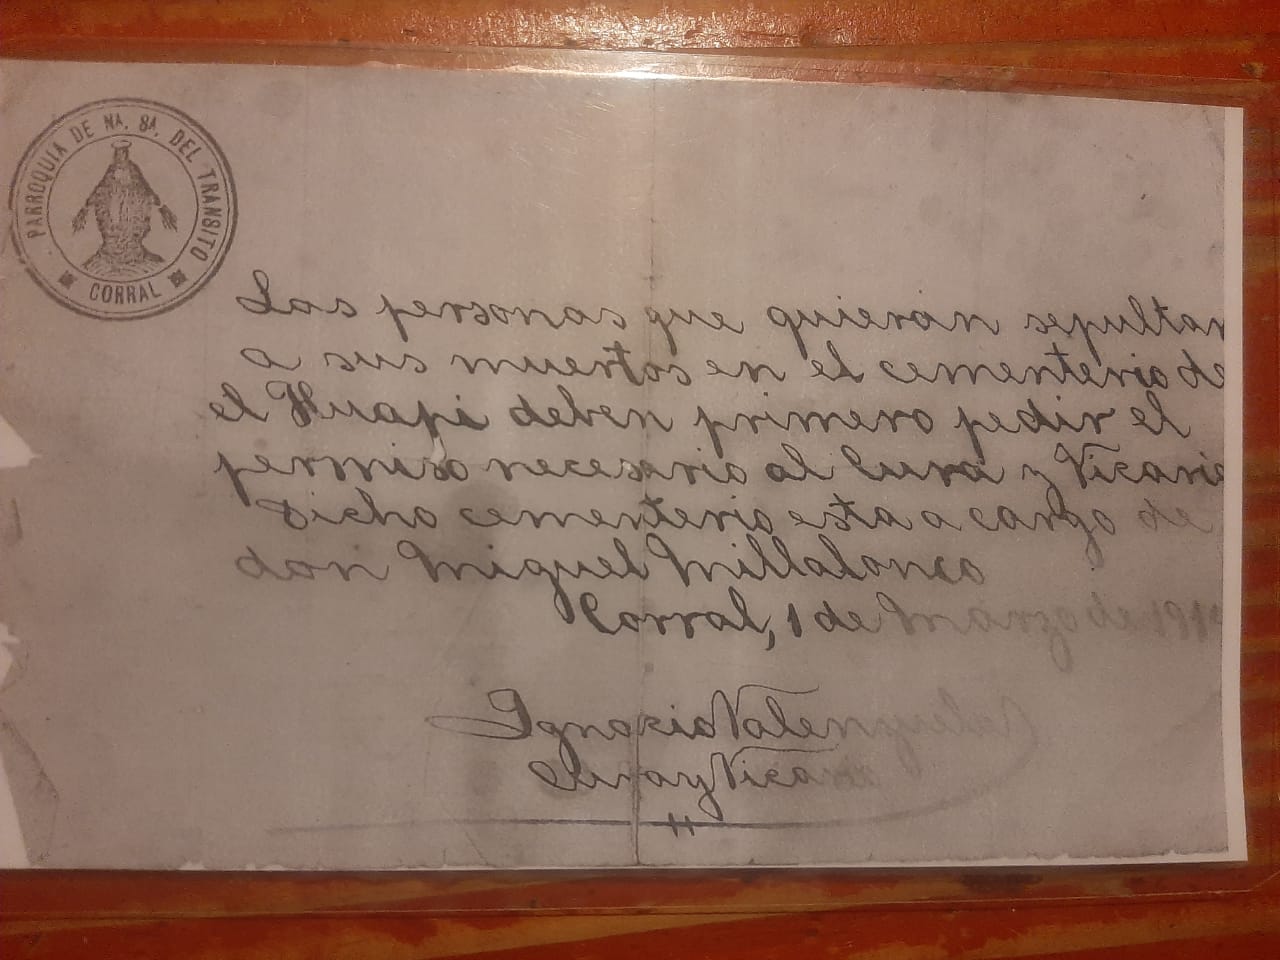 PARROQUIA DE NA. SA. DEL TRANSITO
CORRAL
Las personas que quieran sepultar
a sus muertos en el cementerio de
el Huapi deben primero pedir el
permiso necesario al Cura y Vicario
Dicho cementerio esta a cargo de
don Miguel Millalonco
Corral, 1 de Marzo de
Ignacio Valenzuela
Cura y Vicario